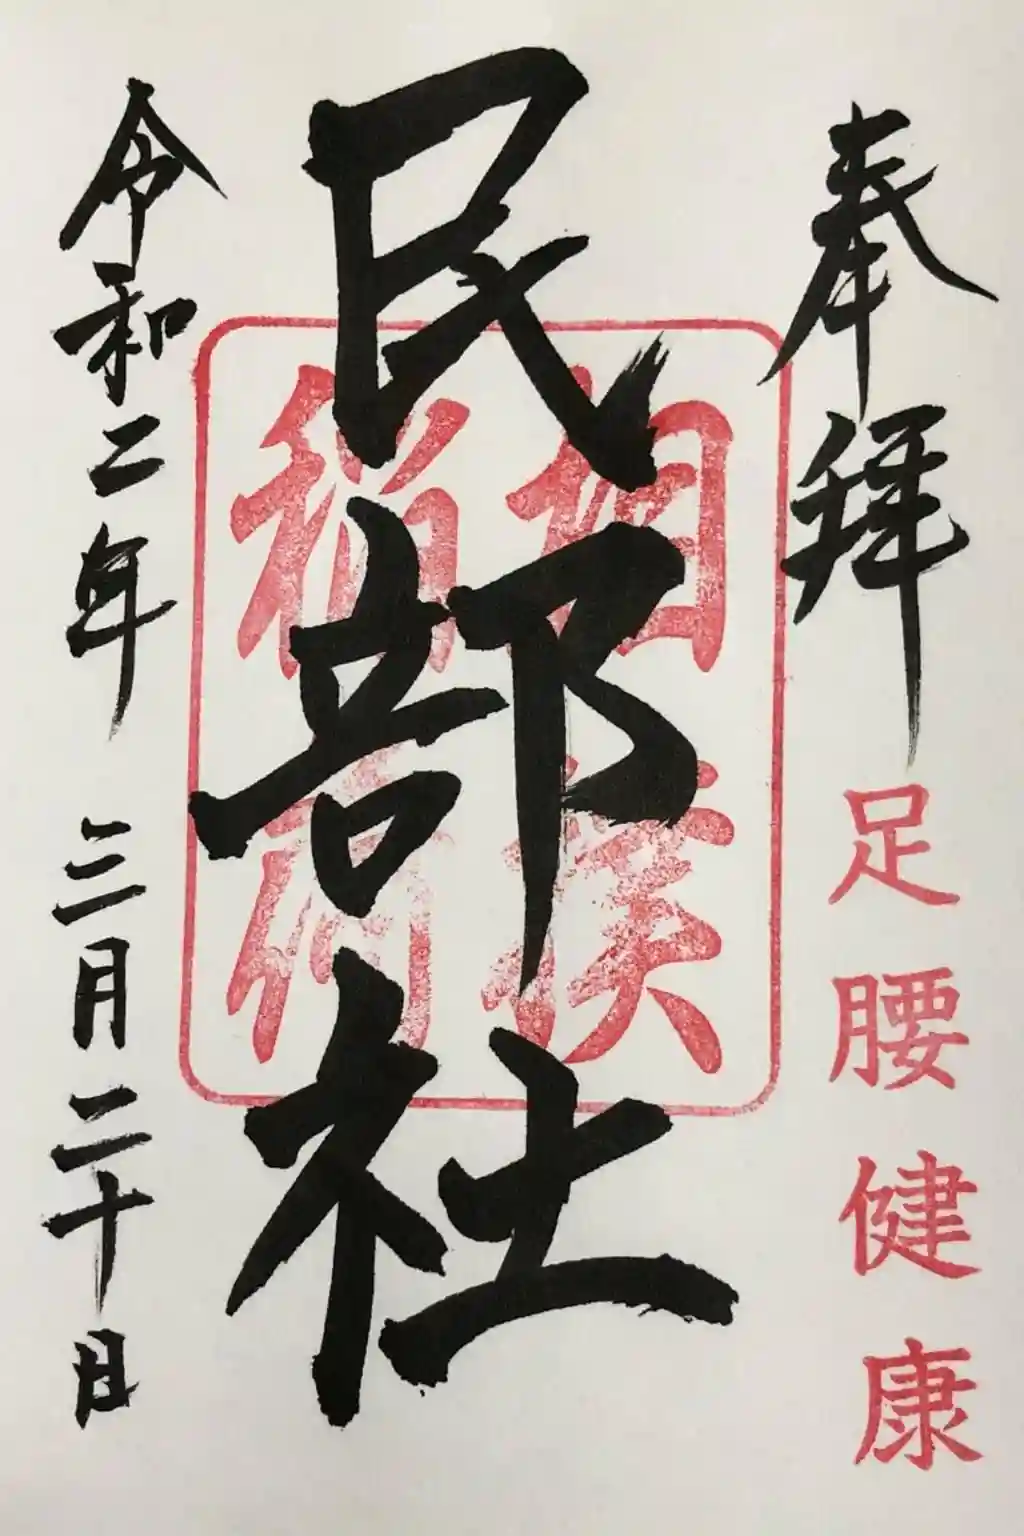 奉拝
足腰健康
民部社
相撲
稲荷
令和二年 三月二十日